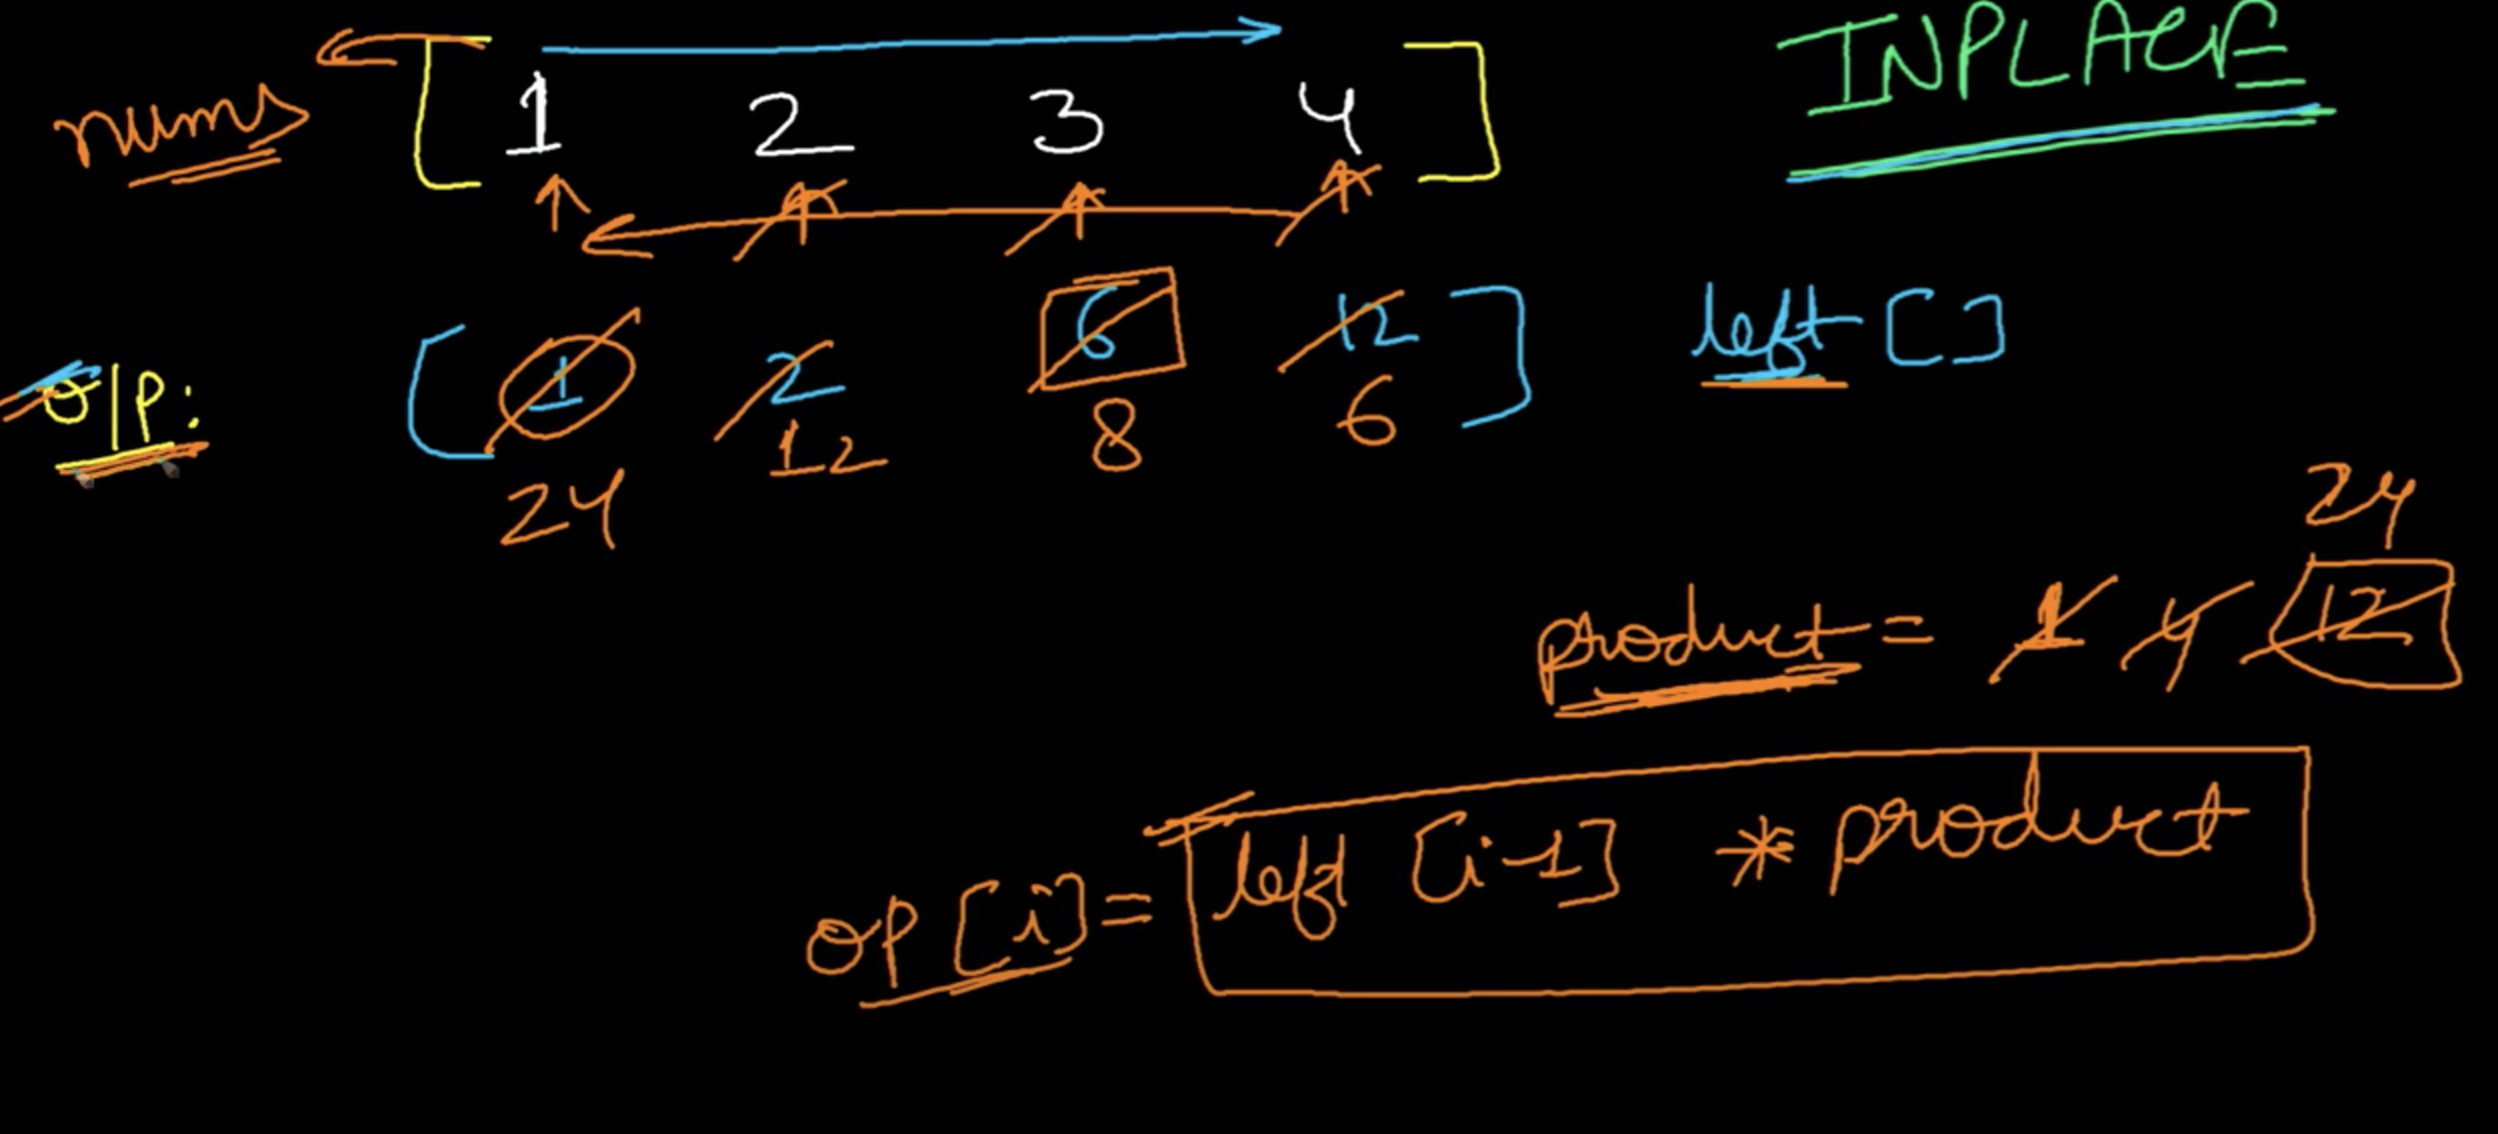 nums [ 1 2 3 4 ] INPLACE
O/P: [ 1 2 6 12 ] left [ ]
24 12 8 6
24
product = 1 4 12
op[i] = left [i-1] * product